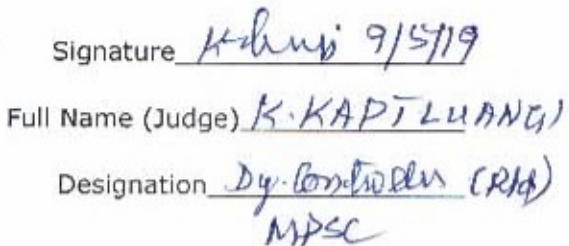 Signature 9/5/19
Full Name (Judge) K. KAPTLUANGI
Designation Dy. Controller
MPSC